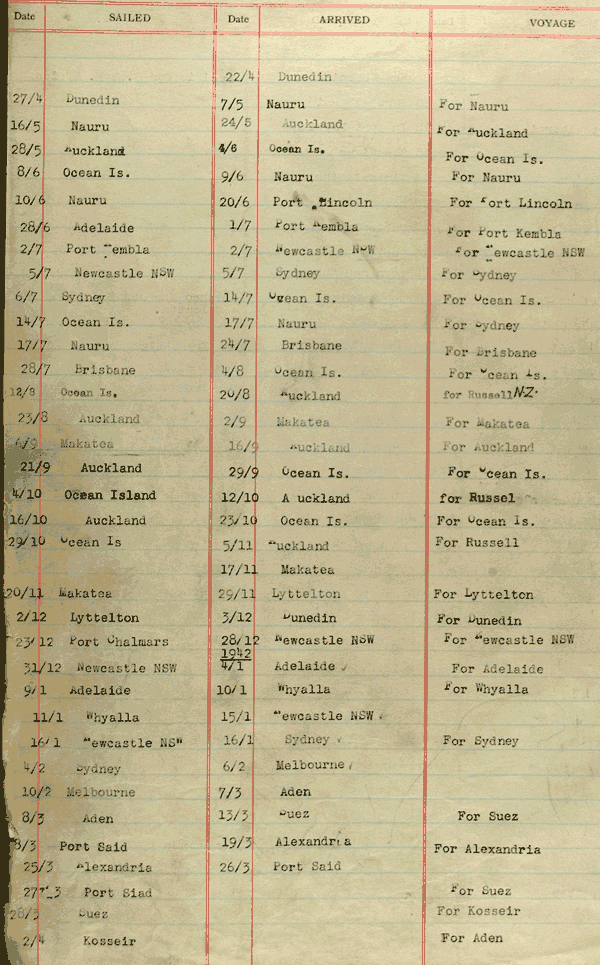 Date SAILED Date ARRIVED VOYAGE
22/4 Dunedin
27/4 Dunedin 7/5 Nauru For Nauru
16/5 Nauru 24/5 Auckland For Auckland
28/5 Auckland 4/6 Ocean Is. For Ocean Is.
8/6 Ocean Is. 9/6 Nauru For Nauru
10/6 Nauru 20/6 Port Lincoln For Port Lincoln
28/6 Adelaide 1/7 Port Kembla For Port Kembla
2/7 Port Kembla 2/7 Newcastle NSW For Newcastle NSW
5/7 Newcastle NSW 5/7 Sydney For Sydney
6/7 Sydney 14/7 Ocean Is. For Ocean Is.
14/7 Ocean Is. 17/7 Nauru For Sydney
17/7 Nauru 24/7 Brisbane For Brisbane
28/7 Brisbane 4/8 Ocean Is. For Ocean Is.
12/8 Ocean Is. 20/8 Auckland for Russell NZ.
23/8 Auckland 2/9 Makatea For Makatea
6/9 Makatea 16/9 Auckland For Auckland
21/9 Auckland 29/9 Ocean Is. For Ocean Is.
4/10 Ocean Island 12/10 A uckland for Russel
16/10 Auckland 23/10 Ocean Is. For Ocean Is.
29/10 Ocean Is 5/11 Auckland For Russell
17/11 Makatea
20/11 Makatea 29/11 Lyttelton For Lyttelton
2/12 Lyttelton 3/12 Dunedin For Dunedin
23/12 Port Chalmars 28/12 Newcastle NSW For Newcastle NSW
1942
31/12 Newcastle NSW 4/1 Adelaide For Adelaide
9/1 Adelaide 10/1 Whyalla For Whyalla
11/1 Whyalla 15/1 Newcastle NSW
16/1 Newcastle NSW 16/1 Sydney For Sydney
4/2 Sydney 6/2 Melbourne
10/2 Melbourne 7/3 Aden
8/3 Aden 13/3 Suez For Suez
8/3 Port Said 19/3 Alexandria For Alexandria
25/3 Alexandria 26/3 Port Said
27/3 Port Siad For Suez
28/3 Suez For Kosseir
2/4 Kosseir For Aden